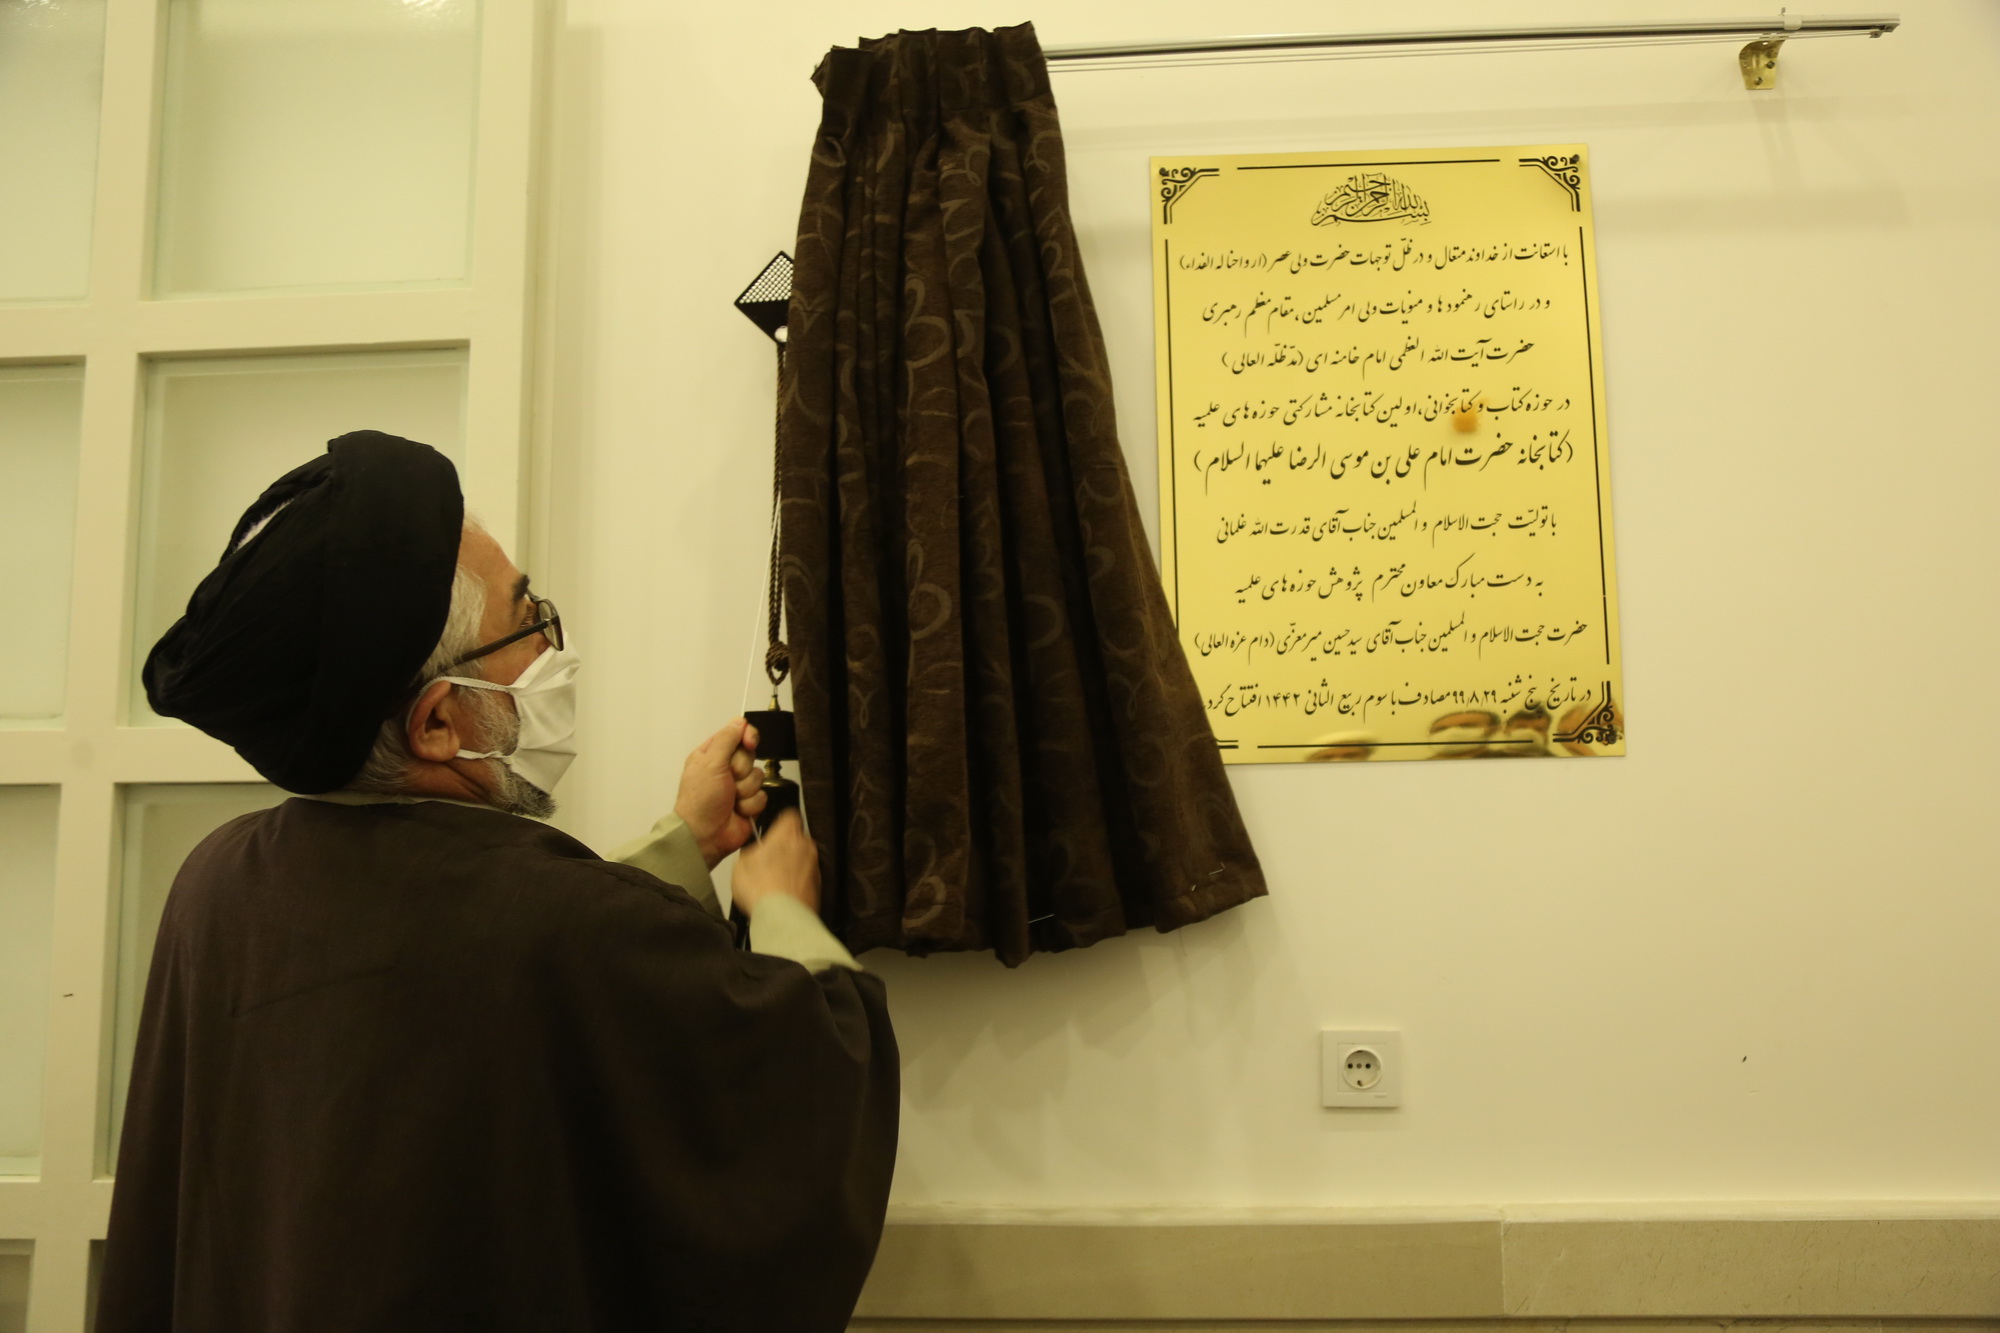 بسم الله الرحمن الرحیم
با استعانت از خداوند متعال و در ظلّ توجهات حضرت ولی عصر (ارواحنا له الفداء)
و در راستای رهنمود ها و منویات ولی امر مسلمین ،مقام معظم رهبری
حضرت آیت الله العظمی امام خامنه ای (مدّظلّه العالی )
در حوزه کتاب و کتابخوانی،اولین کتابخانه مشارکتی حوزه های علمیه
(کتابخانه حضرت امام علی بن موسی الرضا علیهما السلام )
با تولیّت حجت الاسلام و المسلمین جناب آقای قدرت الله غلمانی
به دست مبارک معاون محترم پژوهش حوزه های علمیه
حضرت حجت الاسلام و المسلمین جناب آقای سیدحسین میرمعزّی (دام عزه العالی)
در تاریخ پنج شنبه ۹۹/۸/۲۹مصادف با سوم ربیع الثانی ۱۴۴۲ افتتاح گردید